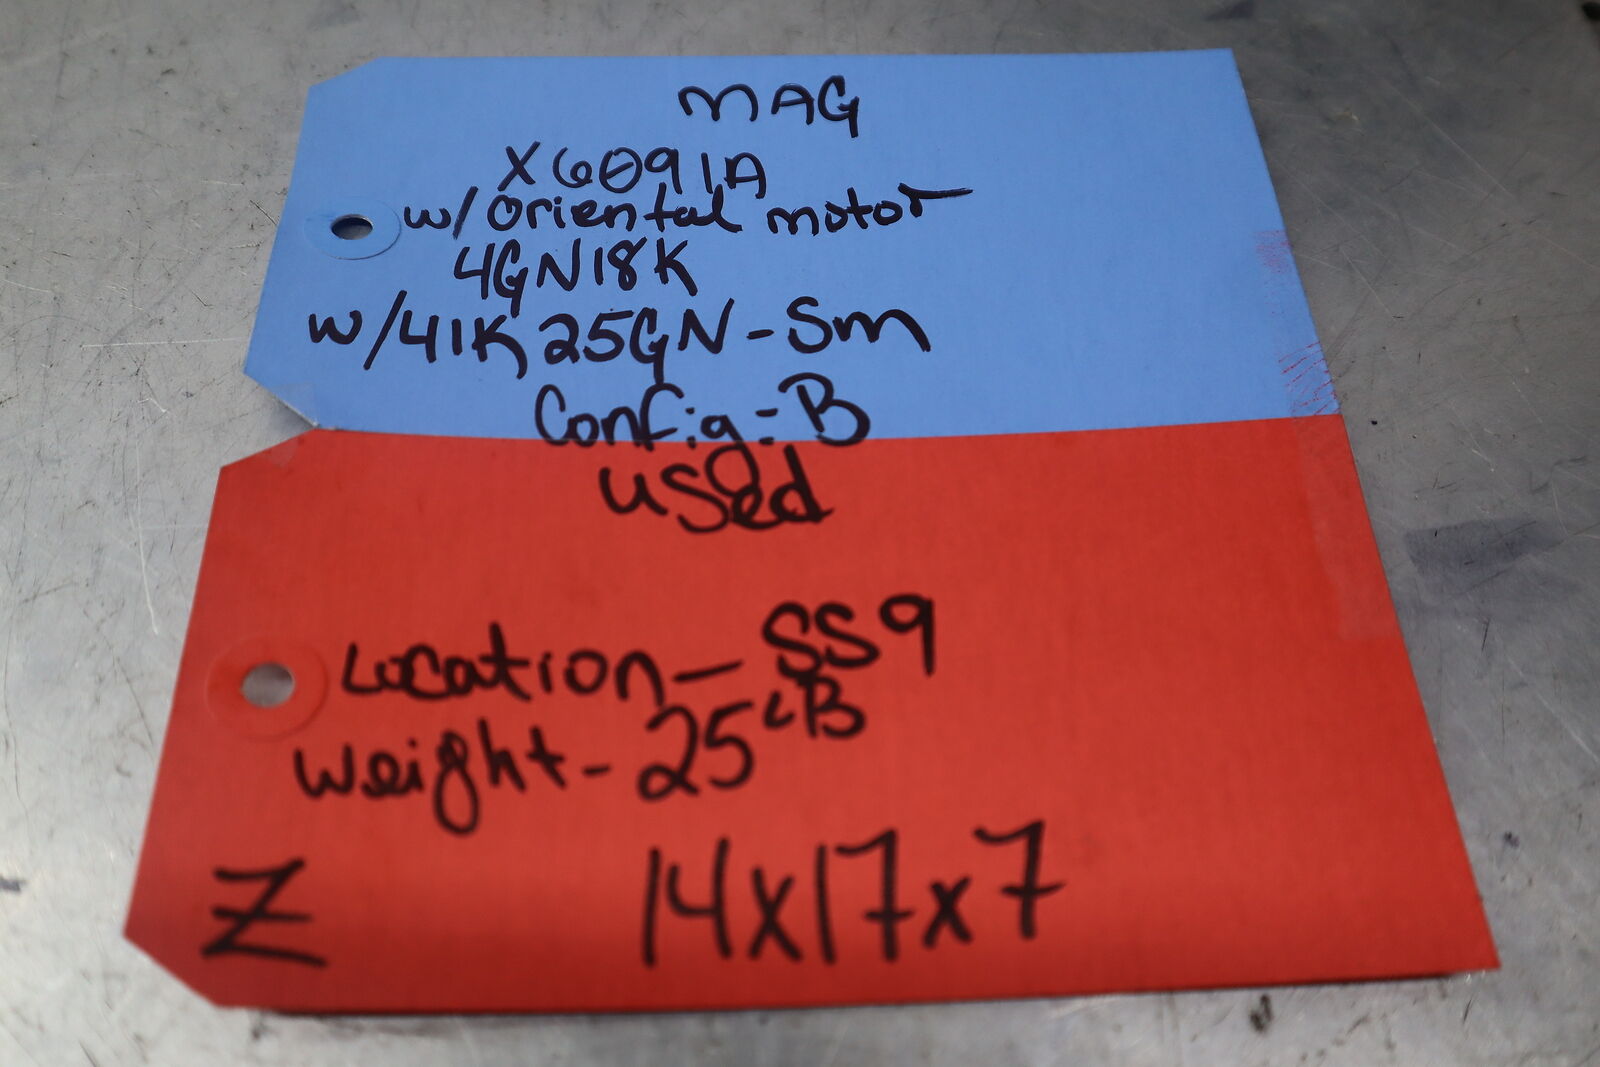 MAG
X6091A
w/ Oriental motor
4GN18K
w/41K25GN-Sm
Config:B
used
Location-SS9
Weight-25LB
Z 14x17x7